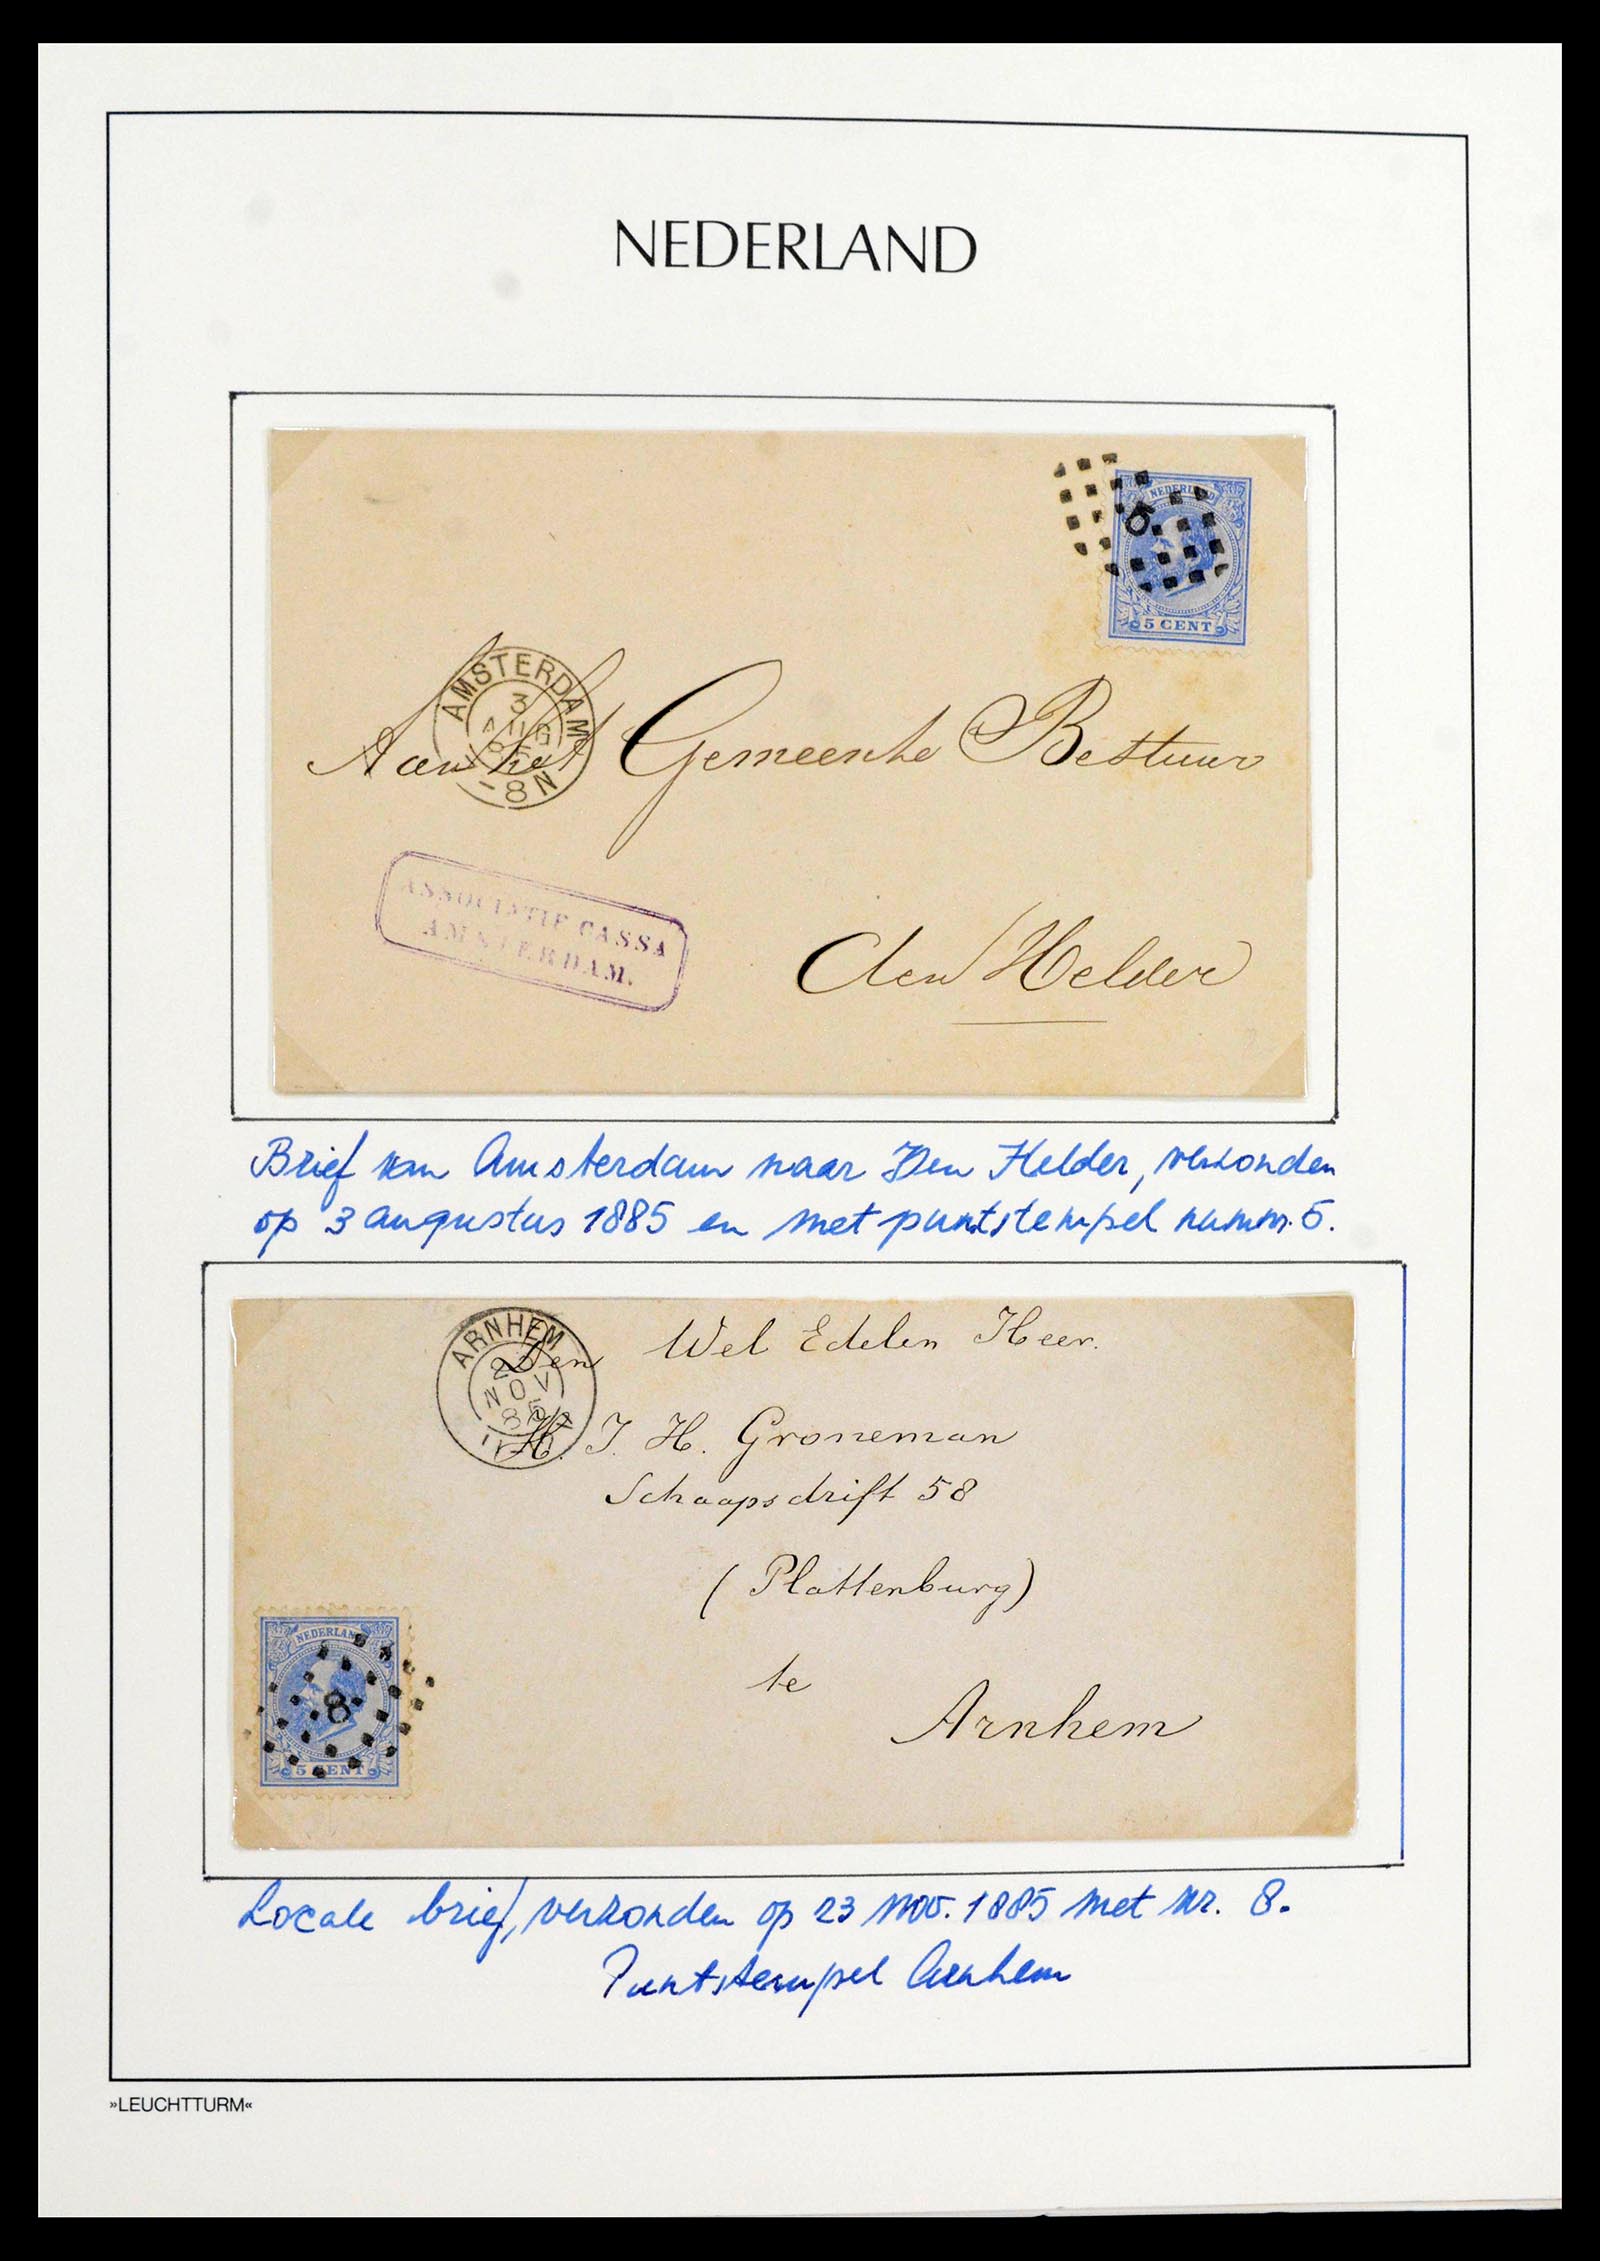 NEDERLAND
NEDERLAND
5
5 CENT
AMSTERDAM
3
AUG
85
-8N
Aan het Gemeente Bestuur
ASSOCIATIE CASSA
AMSTERDAM.
den Helder
Brief van Amsterdam naar Den Helder, verzonden
op 3 augustus 1885 en met puntstempel numm. 5.
ARNHEM
NOV
85
Den Wel Edelen Heer.
H. J. H. Groneman
Schaapsdrift 58
(Plattenburg)
te
Arnhem
NEDERLAND
8
5 CENT
Locale brief, verzonden op 23 nov. 1885 met nr. 8.
Puntstempel Arnhem
»LEUCHTTURM«